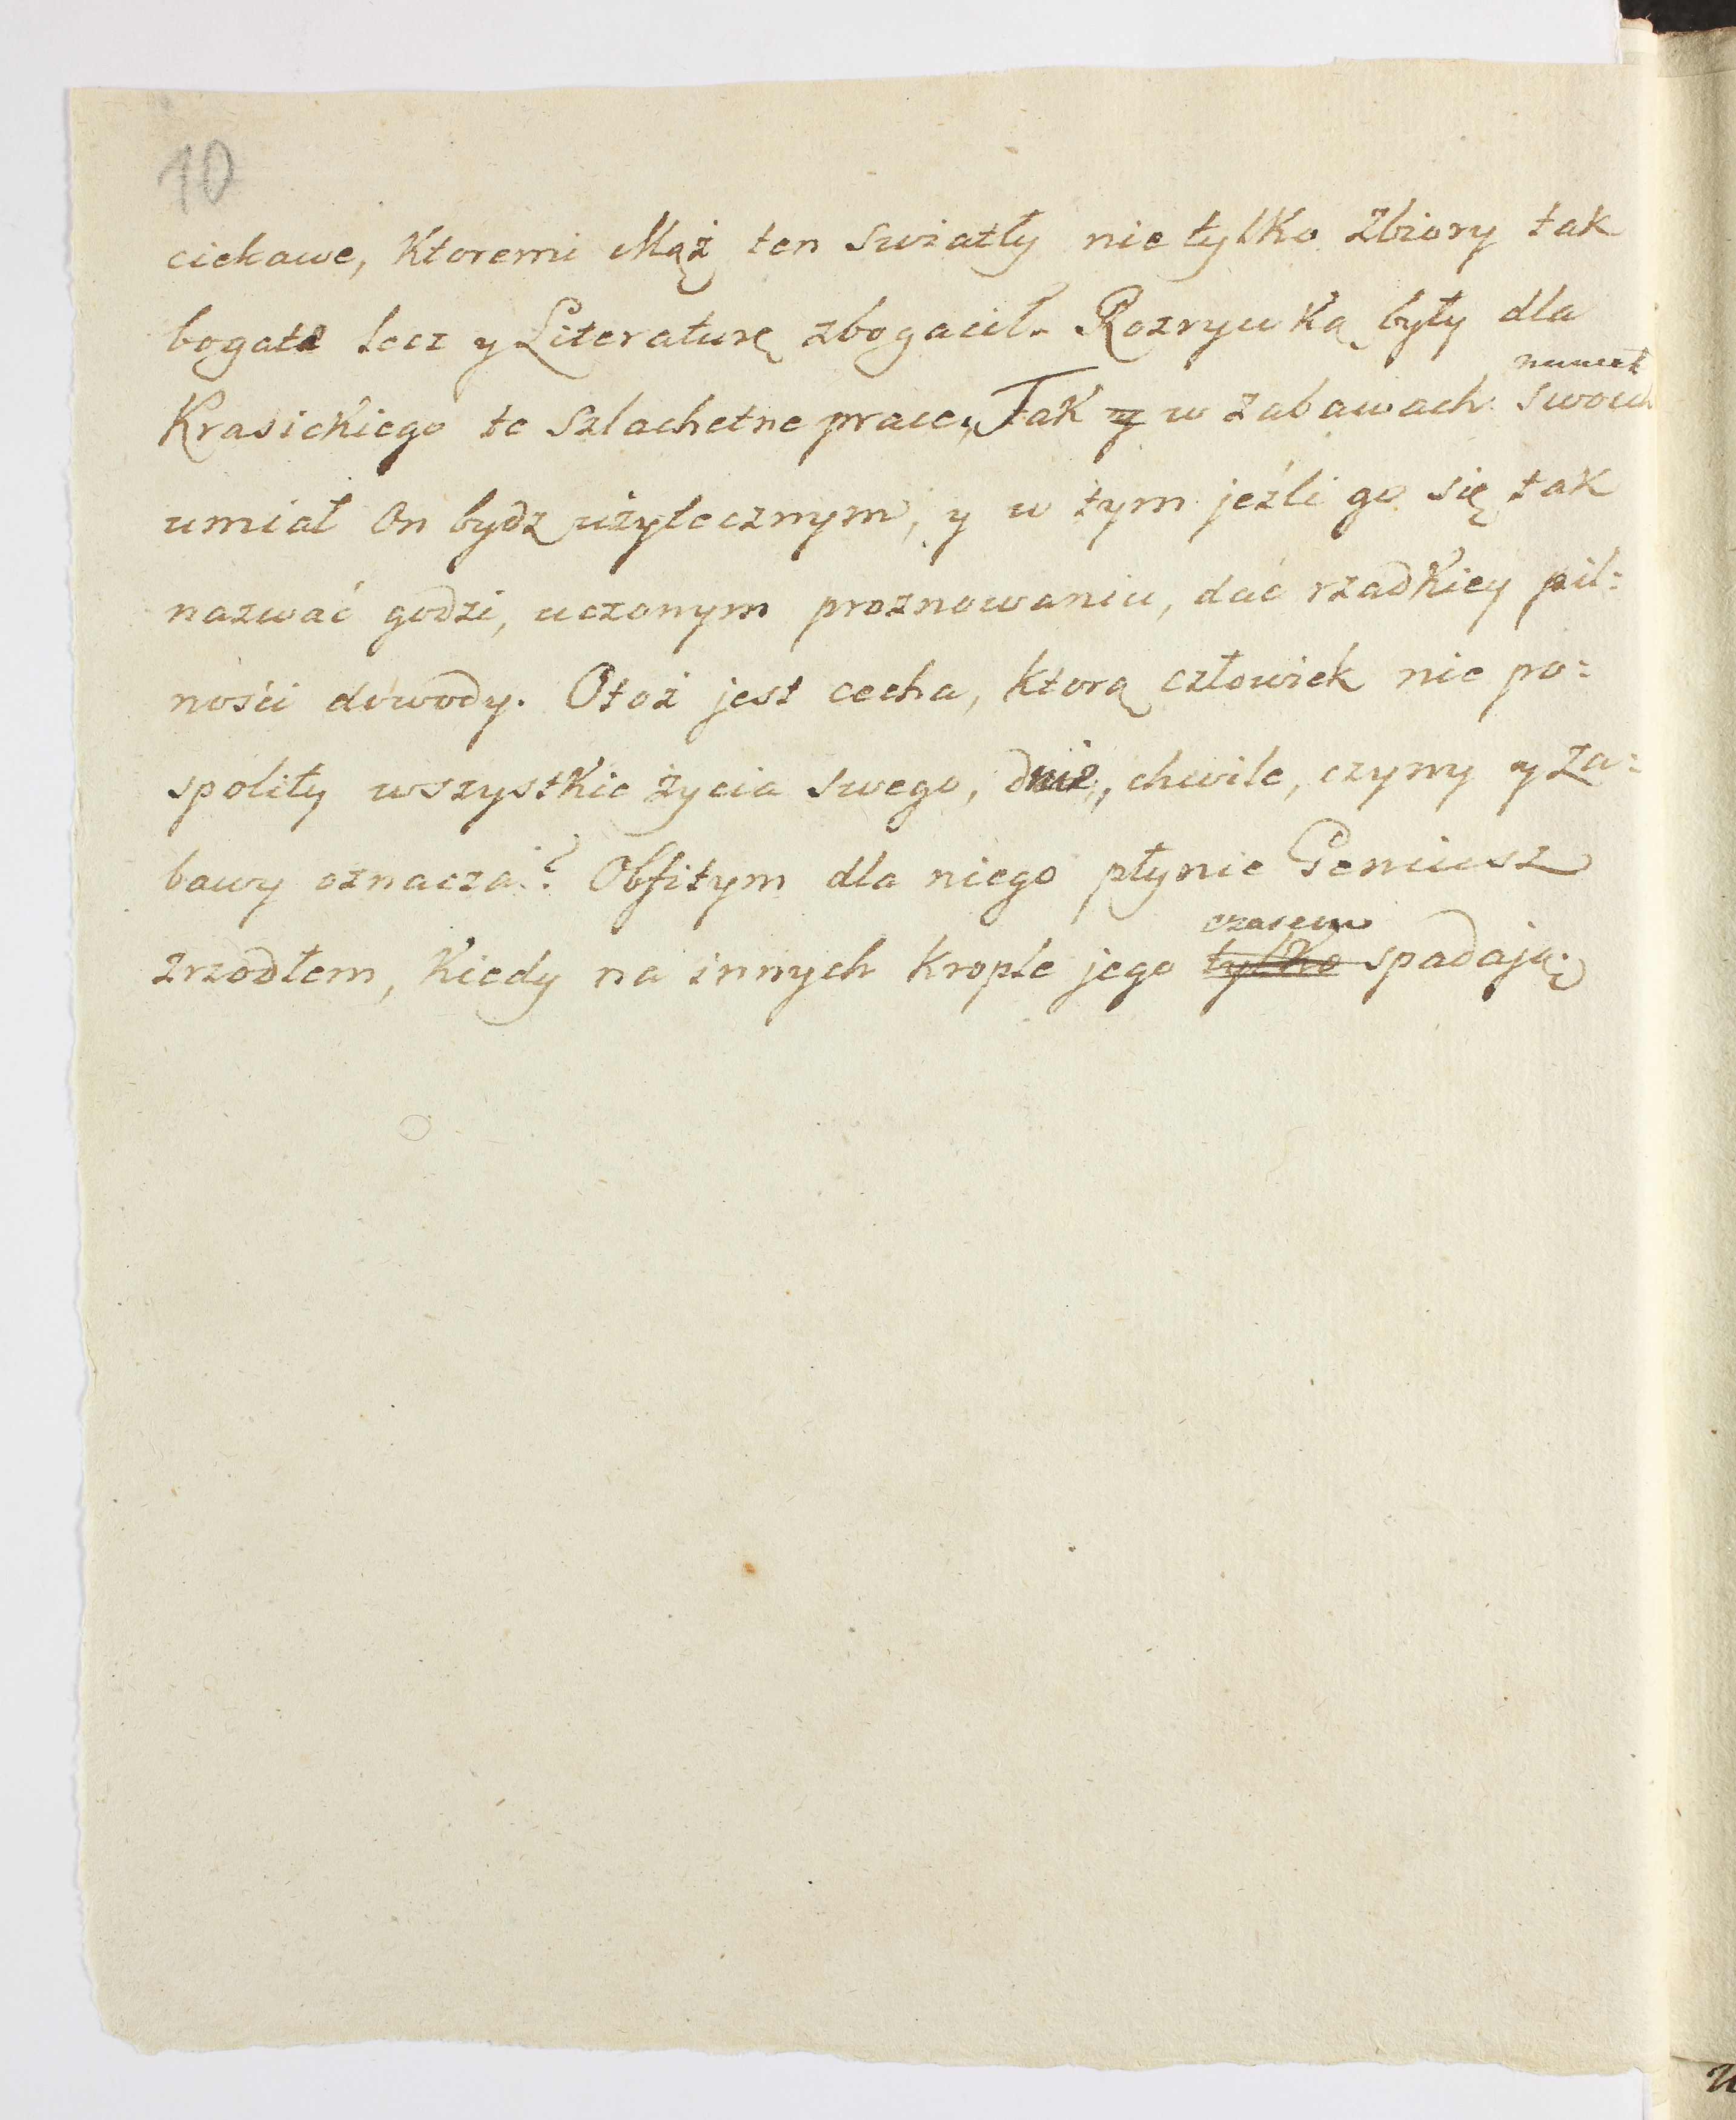 10
ciekawe, ktoremi Mąż ten swiatły nie tylko zbiory tak
bogate lecz y Literaturę zbogacił. Rozrywką były dla
nawet
Krasickiego te szlachetne prace, Tak y w zabawach swoich
umiał On bydz użytecznym, y w tym jeźli go się tak
nazwać godzi, uczonym proznowaniu, dać rzadkiey pil=
ności dowody. Otoż jest cecha, ktorą człowiek nie po=
spolity wszystkie życia swego, dnie, chwile, czyny y za=
bawy oznacza? Obfitym dla niego płynie Geniusz
czasem
zrzodłem, kiedy na innych krople jego tylko spadają.